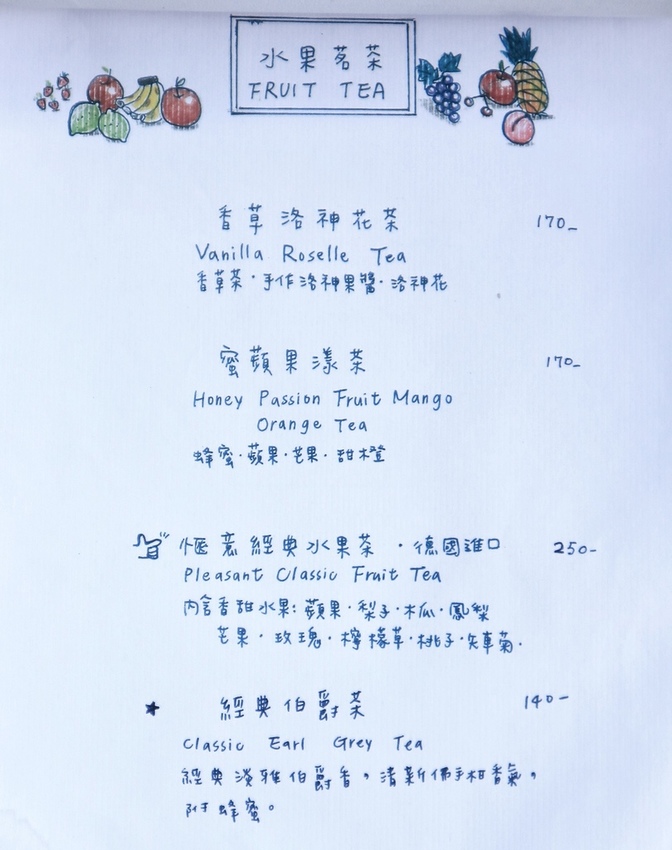 水果茗茶
FRUIT TEA
香草洛神花茶 170_
Vanilla Roselle Tea
香草茶·手作洛神果醬·洛神花
蜜蘋果漾茶 170_
Honey Passion Fruit Mango
Orange Tea
蜂蜜·蘋果·芒果·甜橙
愜意經典水果茶·德國進口 250-
Pleasant Classic Fruit Tea
內含香甜水果:蘋果·梨子·木瓜·鳳梨
芒果·玫瑰·檸檬草·桃子·矢車菊·
★ 經典伯爵茶 140-
Classic Earl Grey Tea
經典淡雅伯爵香，清新佛手柑香氣，
附蜂蜜。